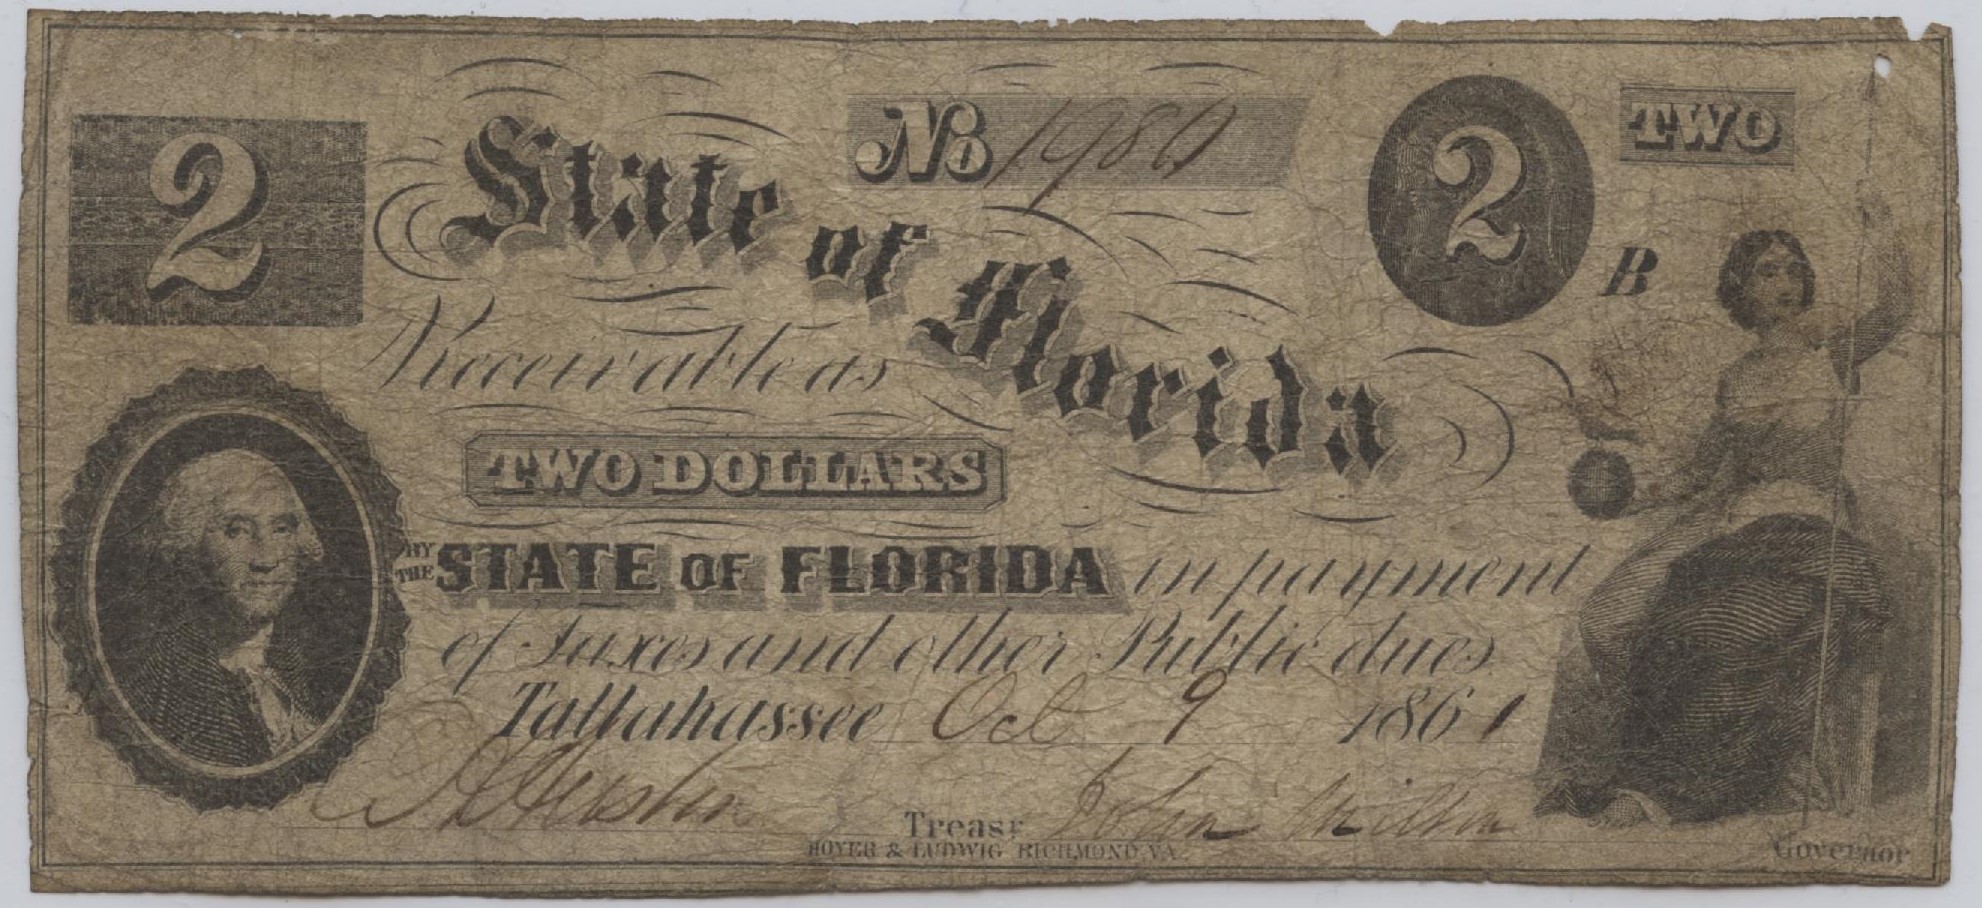 2
State of Florida
No 1980
2
TWO
B
Receivable as
TWO DOLLARS
BY THE STATE OF FLORIDA in payment
of Taxes and other Public dues.
Tallahassee Oct 9 1861
Treasr
John Milton
Governor
HOYER & LUDWIG RICHMOND, VA